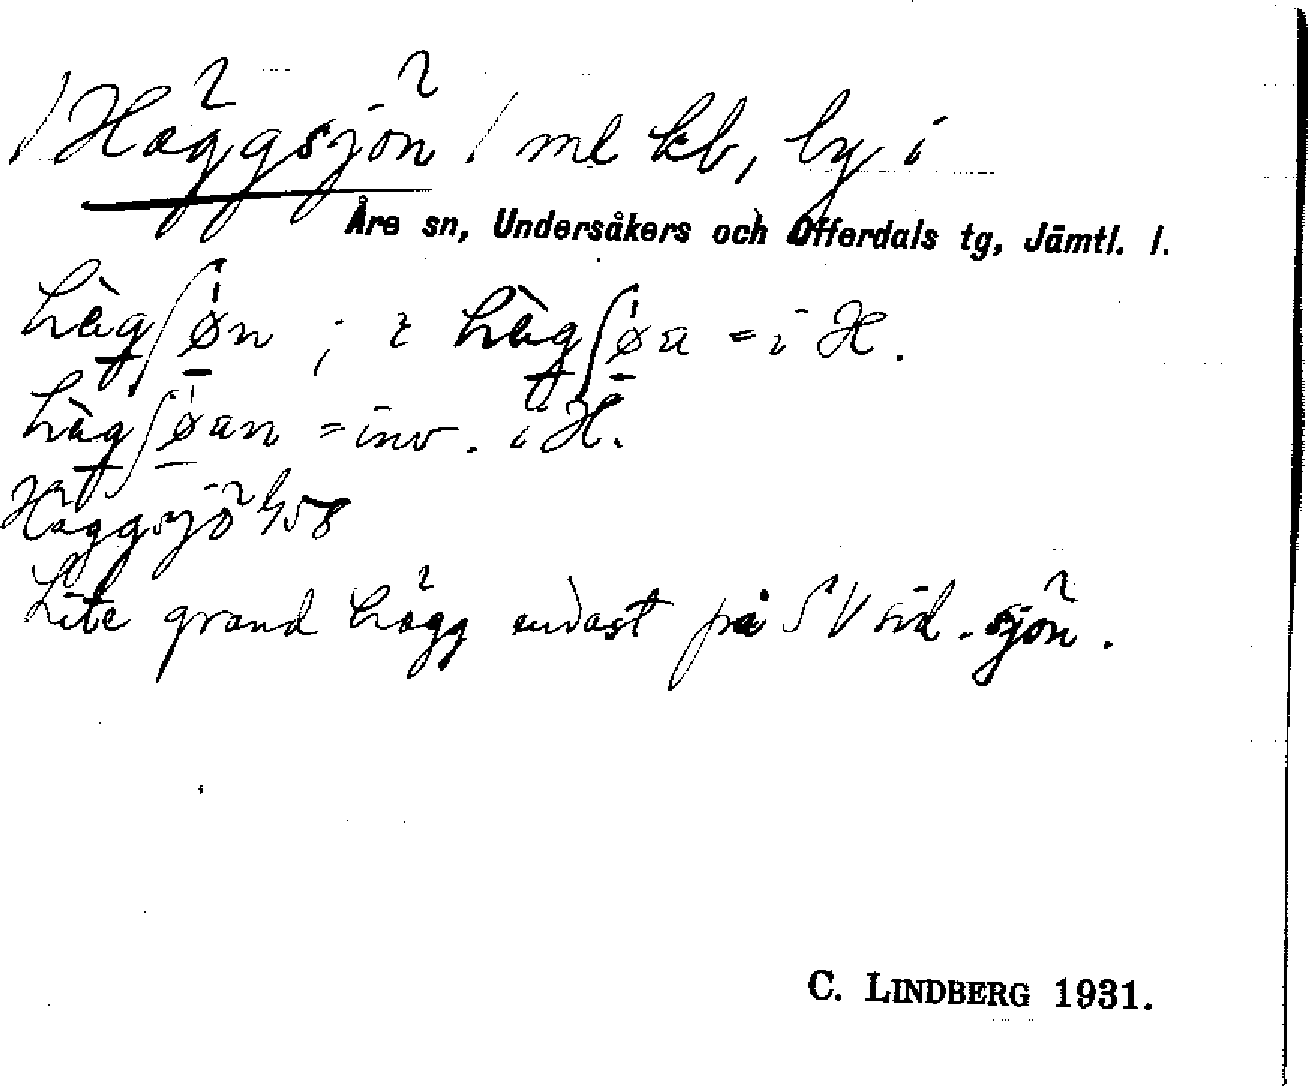 /Häggsjön/ ml kb, by i
Åre sn, Undersåkers och Offerdals tg, Jämtl. l.
hàgʃøn ; i hàgʃøa = i H.
hàgʃøan = inv. i H.
Häggsjö 1/58
Lite grand hägg endast på SV sid. sjön.
C. LINDBERG 1931.